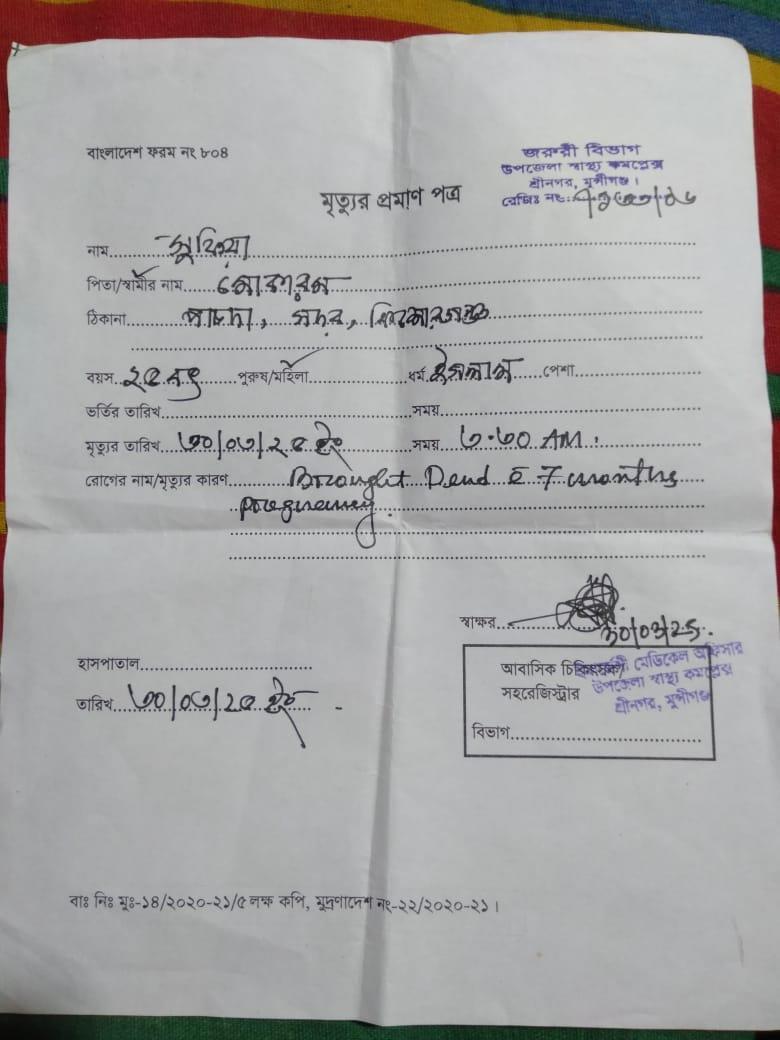 বাংলাদেশ ফরম নং ৮০৪
জরুরী বিভাগ
উপজেলা স্বাস্থ্য কমপ্লেক্স
শ্রীনগর, মুন্সীগঞ্জ।
রেজিঃ নং:
মৃত্যুর প্রমাণ পত্র
নাম
পিতা/স্বামীর নাম
ঠিকানা সদর,
বয়স ২৫ বৎ পুরুষ/মহিলা ধর্ম ইসলাম পেশা
ভর্তির তারিখ সময়
মৃত্যুর তারিখ ৩০/০৩/২৫ ইং সময় ৩.৩০ AM.
রোগের নাম/মৃত্যুর কারণ Brought Dead c̄ 7 months
pregnancy.
স্বাক্ষর
30/03/25.
হাসপাতাল
তারিখ ৩০/০৩/২৫ ইং
আবাসিক চিকিৎসক/
সহরেজিস্ট্রার
বিভাগ
মেডিকেল অফিসার
উপজেলা স্বাস্থ্য কমপ্লেক্স
শ্রীনগর, মুন্সীগঞ্জ
বাঃ নিঃ মুঃ-১৪/২০২০-২১/৫ লক্ষ কপি, মুদ্রণাদেশ নং-২২/২০২০-২১।